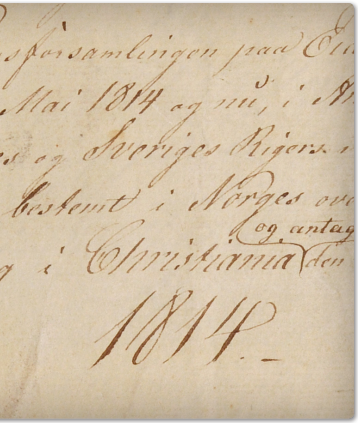 sforsamlingen paa Ei
Mai 1814 og nu, i An
es og Sveriges Rigers
bestemt i Norges ove
og antag
g i Christiania den
1814._